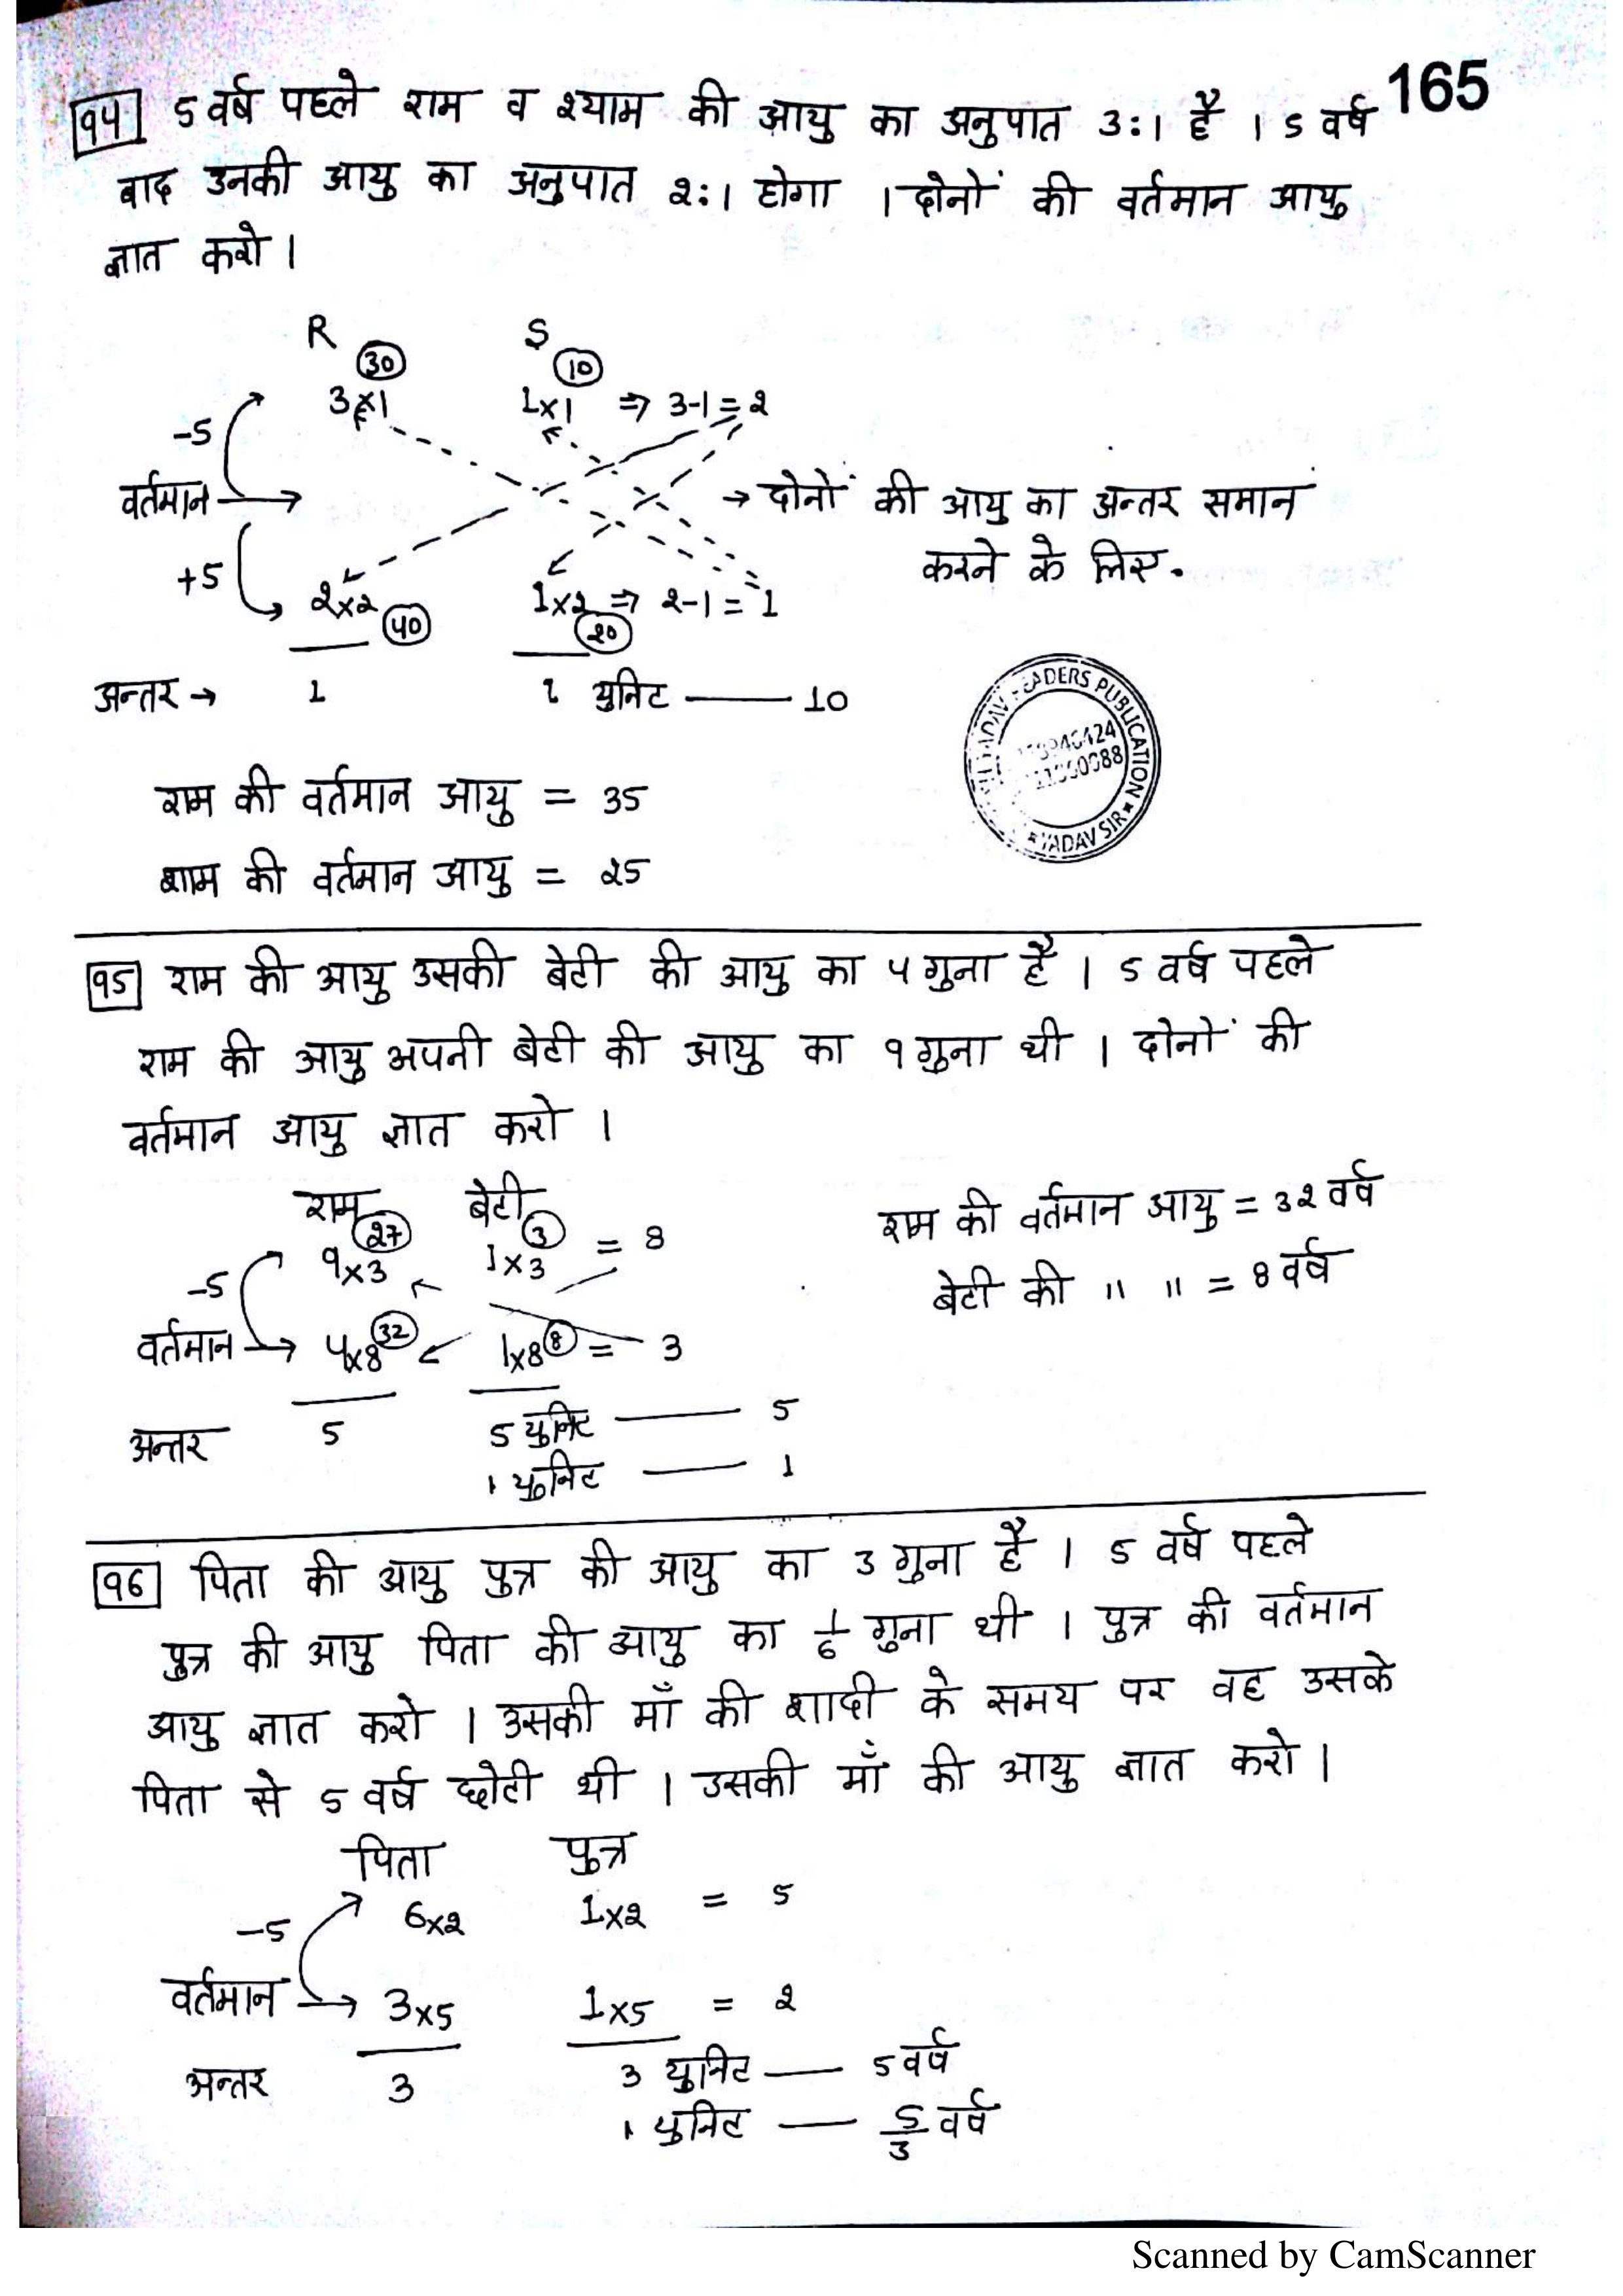 165
94 5 वर्ष पहले राम व श्याम की आयु का अनुपात 3:1 है । 5 वर्ष
बाद उनकी आयु का अनुपात 2:1 होगा । दोनों की वर्तमान आयु
ज्ञात करो ।
R S
30 10
3×1 1×1 ⇒ 3-1=2
-5
वर्तमान → → दोनों की आयु का अन्तर समान
करने के लिए.
+5
2×2 1×2 ⇒ 2-1=1
40 20
अन्तर → 1 1 युनिट — 10
राम की वर्तमान आयु = 35
शाम की वर्तमान आयु = 25
PUBLICATION
YADAV SIR
95 राम की आयु उसकी बेटी की आयु का 4 गुना है । 5 वर्ष पहले
राम की आयु अपनी बेटी की आयु का 9 गुना थी । दोनों की
वर्तमान आयु ज्ञात करो ।
राम बेटी
27 3
9×3 1×3 = 8
-5
वर्तमान → 4×8 32 1×8 8 = 3
अन्तर 5 5 युनिट — 5
1 युनिट — 1
राम की वर्तमान आयु = 32 वर्ष
बेटी की " " = 8 वर्ष
96 पिता की आयु पुत्र की आयु का 3 गुना है । 5 वर्ष पहले
पुत्र की आयु पिता की आयु का 1/6 गुना थी । पुत्र की वर्तमान
आयु ज्ञात करो । उसकी माँ की शादी के समय पर वह उसके
पिता से 5 वर्ष छोटी थी । उसकी माँ की आयु ज्ञात करो ।
पिता पुत्र
6×2 1×2 = 5
-5
वर्तमान → 3×5 1×5 = 2
अन्तर 3 3 युनिट — 5 वर्ष
1 युनिट — 5/3 वर्ष
Scanned by CamScanner